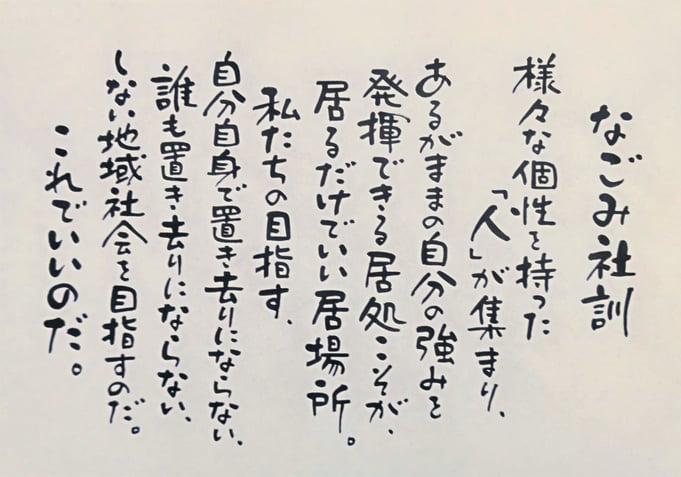 なごみ社訓
様々な個性を持った
「人」が集まり、
あるがままの自分の強みを
発揮できる居処こそが、
居るだけでいい居場所。
私たちの目指す、
自分自身で置き去りにならない、
誰も置き去りにならない、
しない地域社会を目指すのだ。
これでいいのだ。